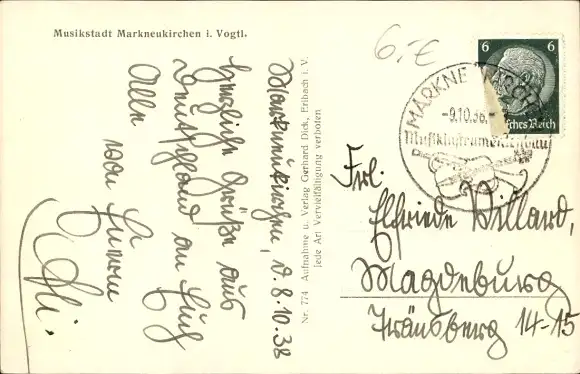 Musikstadt Markneukirchen i. Vogtl.
6.-€
6 6
MARKNEUKIRCHEN
-9.10.38.-
Musikinstrumentenbau
Deutsches Reich
Nr. 774 Aufnahme u. Verlag Gerhard Dick, Erlbach i. V.
Jede Art Vervielfältigung verboten
Markneukirchen, d. 8.10.38
Herzliche Grüße aus
an Euch
Alle von Eurem
Frl.
Elfriede Villard,
Magdeburg
14-15